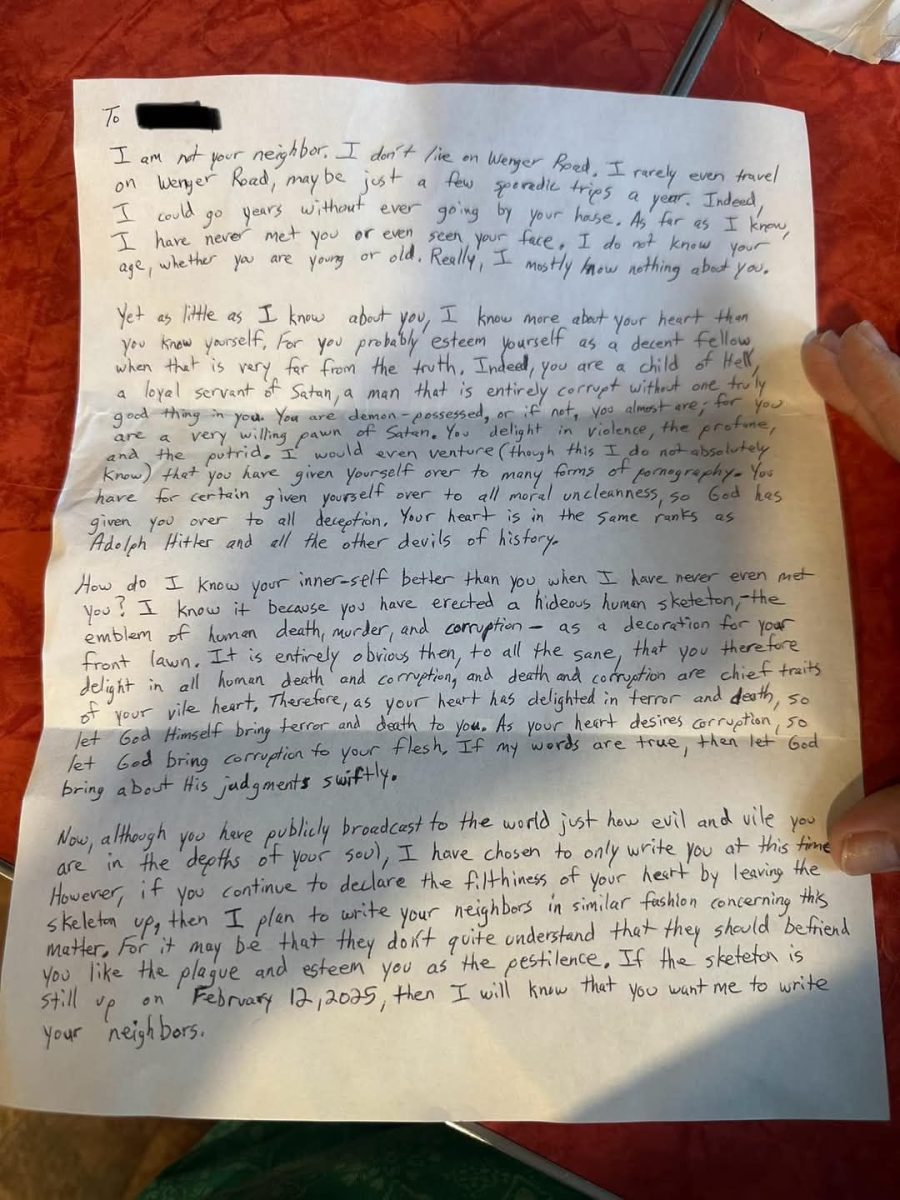 To
I am not your neighbor. I don't live on Wenger Road. I rarely even travel
on Wenger Road, maybe just a few sporadic trips a year. Indeed,
I could go years without ever going by your house. As far as I know,
I have never met you or even seen your face. I do not know your
age, whether you are young or old. Really, I mostly know nothing about you.
Yet as little as I know about you, I know more about your heart than
you know yourself. For you probably esteem yourself as a decent fellow
when that is very far from the truth. Indeed, you are a child of Hell,
a loyal servant of Satan, a man that is entirely corrupt without one truly
good thing in you. You are demon-possessed, or if not, you almost are; for you
are a very willing pawn of Satan. You delight in violence, the profane,
and the putrid. I would even venture (though this I do not absolutely
know) that you have given yourself over to many forms of pornography. You
have for certain given yourself over to all moral uncleanness, so God has
given you over to all deception. Your heart is in the same ranks as
Adolph Hitler and all the other devils of history.
How do I know your inner-self better than you when I have never even met
you? I know it because you have erected a hideous human sketeton,-the
emblem of human death, murder, and corruption - as a decoration for your
front lawn. It is entirely obvious then, to all the sane, that you therefore
delight in all human death and corruption, and death and corruption are chief traits
of your vile heart. Therefore, as your heart has delighted in terror and death, so
let God Himself bring terror and death to you. As your heart desires corruption, so
let God bring corruption to your flesh. If my words are true, then let God
bring about His judgments swiftly.
Now, although you have publicly broadcast to the world just how evil and vile you
are in the depths of your soul, I have chosen to only write you at this time.
However, if you continue to declare the filthiness of your heart by leaving the
skeleton up, then I plan to write your neighbors in similar fashion concerning this
matter. For it may be that they don't quite understand that they should befriend
you like the plague and esteem you as the pestilence. If the sketeton is
still up on February 12, 2025, then I will know that you want me to write
your neighbors.